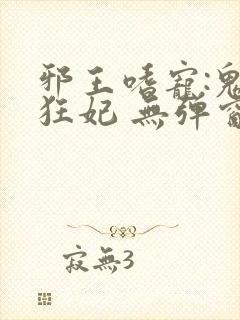 邪王嗜寵:鬼
狂妃 無彈窗
寂無3